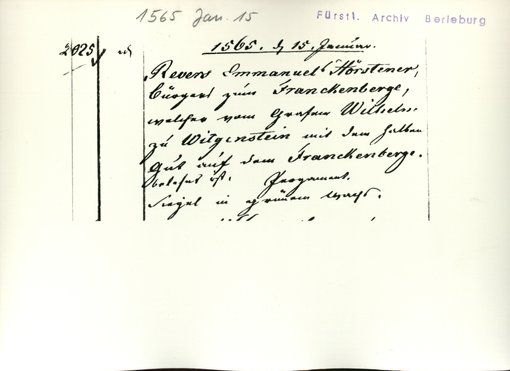 1565 Jan. 15
Fürstl. Archiv Berleburg
2025 1565. d. 15. Januar.
Revers Emmanuel Hörstener,
Bürgers zum Franckenberge,
welcher vom Grafen Wilhelm
zu Witgenstein mit dem halben
Gut auf dem Franckenberge
belehnt ist. Pergament.
Siegel in grünem Wachs.